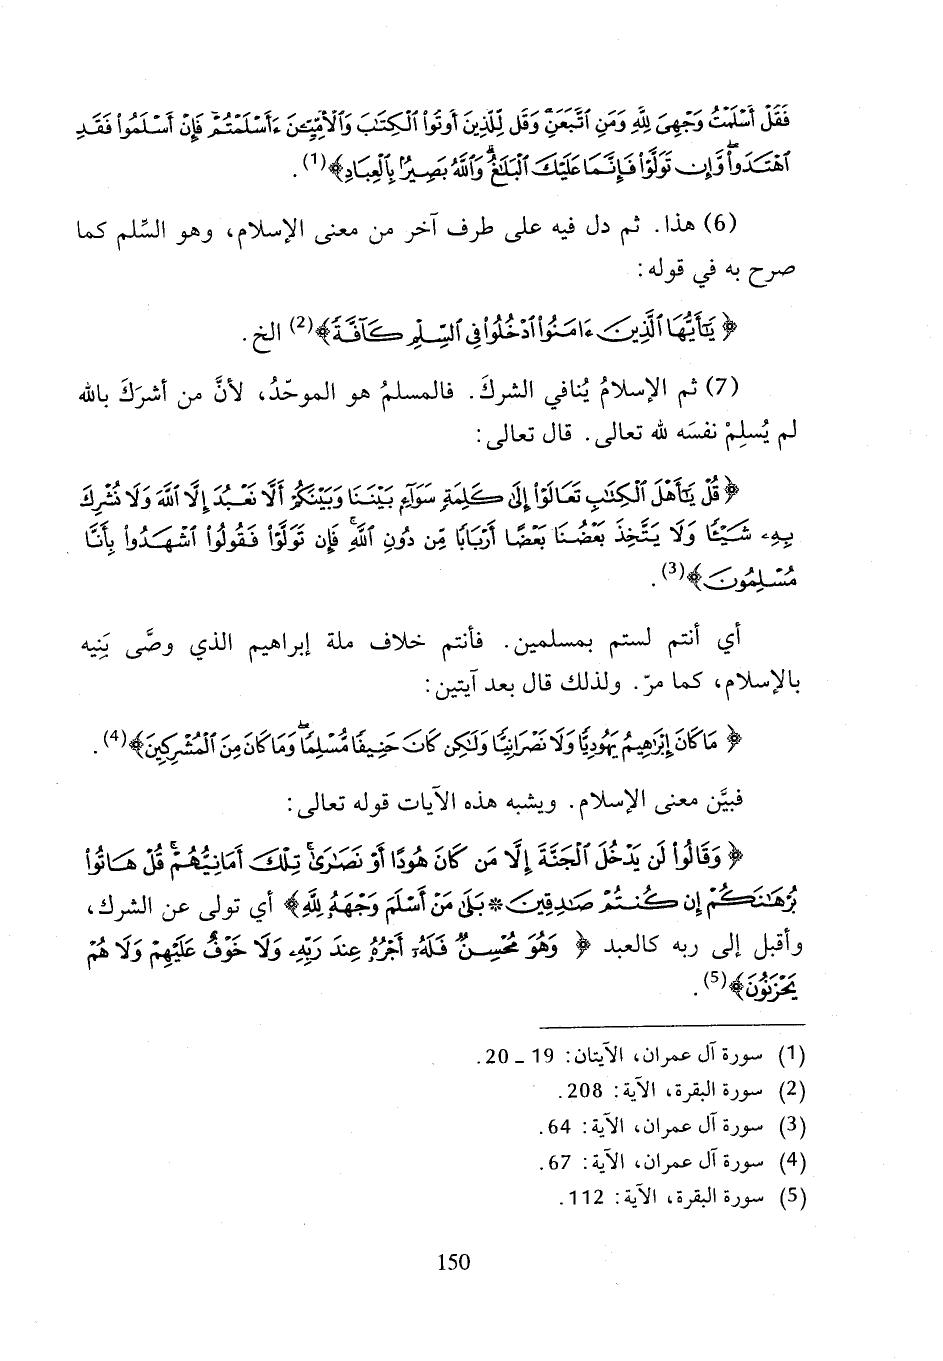 فَقُلْ أَسْلَمْتُ وَجْهِىَ لِلَّهِ وَمَنِ ٱتَّبَعَنِ ۗ وَقُل لِّلَّذِينَ أُوتُوا۟ ٱلْكِتَٰبَ وَٱلْأُمِّيِّـۧنَ ءَأَسْلَمْتُمْ ۚ فَإِنْ أَسْلَمُوا۟ فَقَدِ
ٱهْتَدَوا۟ ۖ وَّإِن تَوَلَّوْا۟ فَإِنَّمَا عَلَيْكَ ٱلْبَلَٰغُ ۗ وَٱللَّهُ بَصِيرٌۢ بِٱلْعِبَادِ﴾(1) .
(6) هذا. ثم دل فيه على طرف آخر من معنى الإسلام، وهو السِّلم كما
صرح به في قوله:
﴿ يَٰٓأَيُّهَا ٱلَّذِينَ ءَامَنُوا۟ ٱدْخُلُوا۟ فِى ٱلسِّلْمِ كَآفَّةً﴾(2) الخ.
(7) ثم الإسلامُ يُنافي الشركَ. فالمسلمُ هو الموحّدُ، لأنَّ من أشرَكَ بالله
لم يُسلِمْ نفسَه لله تعالى. قال تعالى:
﴿ قُلْ يَٰٓأَهْلَ ٱلْكِتَٰبِ تَعَالَوْا۟ إِلَىٰ كَلِمَةٍ سَوَآءٍۭ بَيْنَنَا وَبَيْنَكُمْ أَلَّا نَعْبُدَ إِلَّا ٱللَّهَ وَلَا نُشْرِكَ
بِهِۦ شَيْـًٔا وَلَا يَتَّخِذَ بَعْضُنَا بَعْضًا أَرْبَابًا مِّن دُونِ ٱللَّهِ ۚ فَإِن تَوَلَّوْا۟ فَقُولُوا۟ ٱشْهَدُوا۟ بِأَنَّا
مُسْلِمُونَ﴾(3) .
أي أنتم لستم بمسلمين. فأنتم خلاف ملة إبراهيم الذي وصَّى بَنِيه
بالإسلام، كما مرّ. ولذلك قال بعد آيتين:
﴿ مَا كَانَ إِبْرَٰهِيمُ يَهُودِيًّا وَلَا نَصْرَانِيًّا وَلَٰكِن كَانَ حَنِيفًا مُّسْلِمًا ۖ وَمَا كَانَ مِنَ ٱلْمُشْرِكِينَ﴾(4) .
فبيَّن معنى الإسلام. ويشبه هذه الآيات قوله تعالى:
﴿ وَقَالُوا۟ لَن يَدْخُلَ ٱلْجَنَّةَ إِلَّا مَن كَانَ هُودًا أَوْ نَصَٰرَىٰ ۗ تِلْكَ أَمَانِيُّهُمْ ۗ قُلْ هَاتُوا۟
بُرْهَٰنَكُمْ إِن كُنتُمْ صَٰدِقِينَ * بَلَىٰ مَنْ أَسْلَمَ وَجْهَهُۥ لِلَّهِ﴾ أي تولى عن الشرك،
وأقبل إلى ربه كالعبد ﴿ وَهُوَ مُحْسِنٌ فَلَهُۥٓ أَجْرُهُۥ عِندَ رَبِّهِۦ وَلَا خَوْفٌ عَلَيْهِمْ وَلَا هُمْ
يَحْزَنُونَ﴾(5) .
(1) سورة آل عمران، الآيتان: 19 ــ 20 .
(2) سورة البقرة، الآية: 208 .
(3) سورة آل عمران، الآية: 64 .
(4) سورة آل عمران، الآية: 67 .
(5) سورة البقرة، الآية: 112 .
150